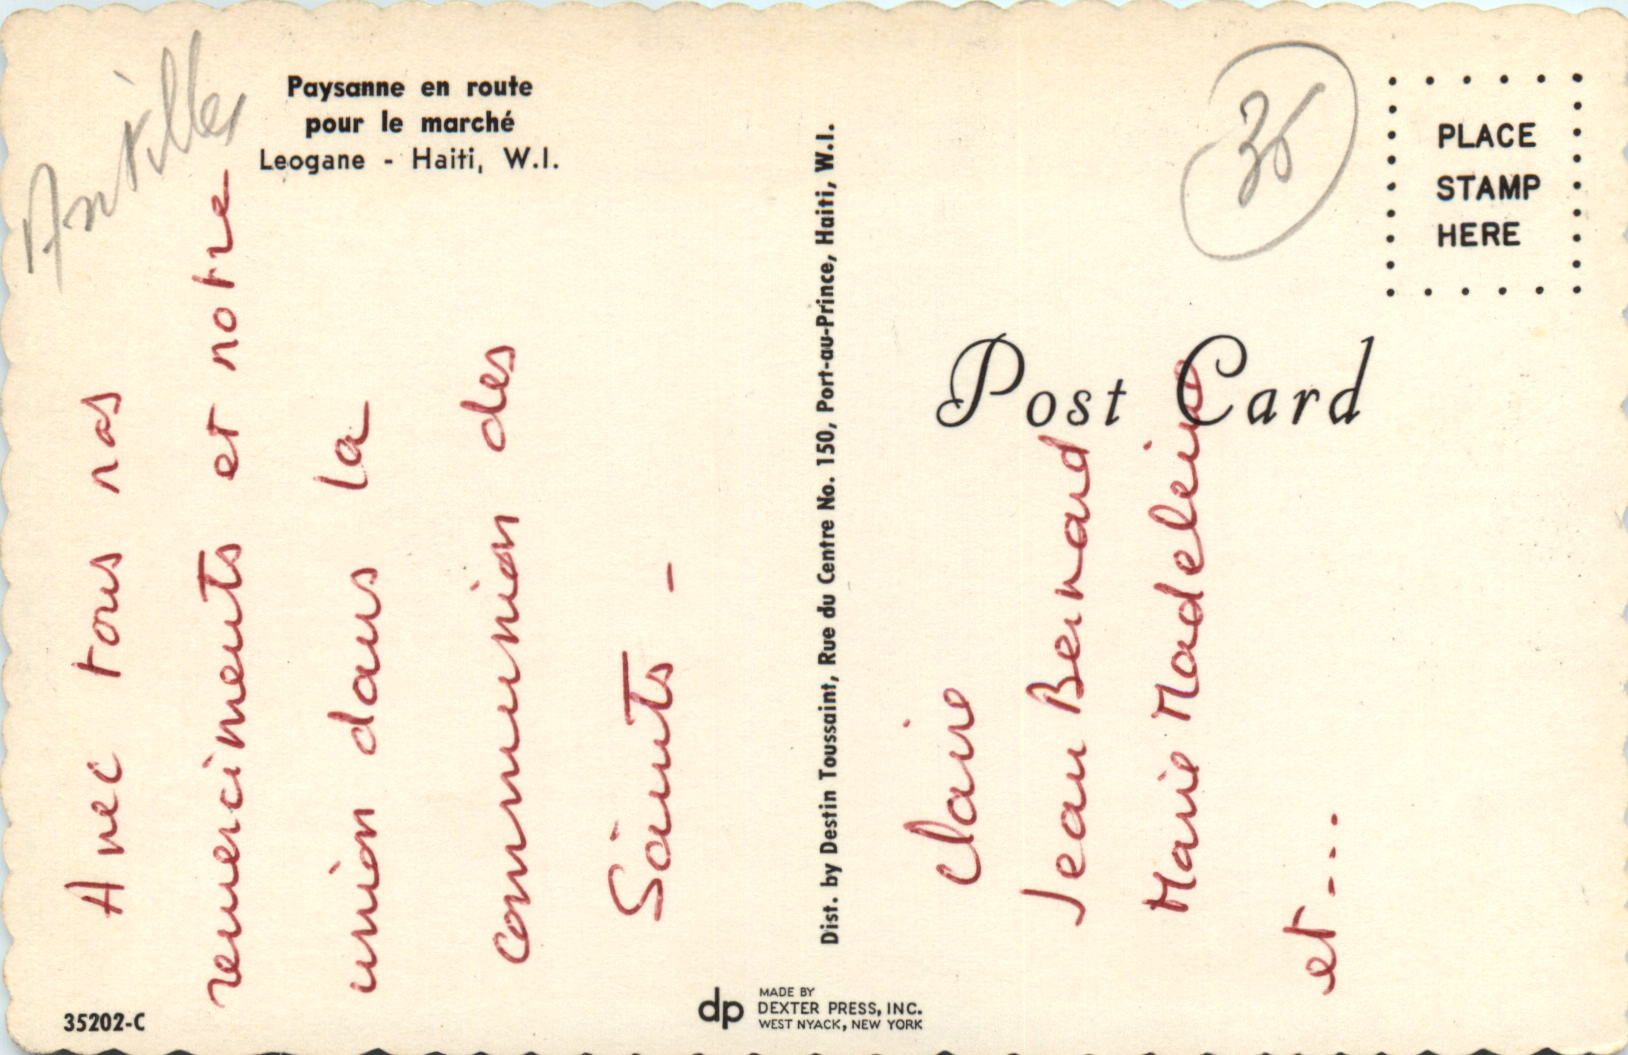 Antilles
Paysanne en route
pour le marché
Leogane - Haiti, W.I.
Avec tous nos
remerciements et notre
union dans la
communion des
Saints -
35202-C
Dist. by Destin Toussaint, Rue du Centre No. 150, Port-au-Prince, Haiti, W.I.
dp
MADE BY
DEXTER PRESS, INC.
WEST NYACK, NEW YORK
PLACE
STAMP
HERE
Post Card
Claire
Jean Bernard
Marie Madeleine
et ...